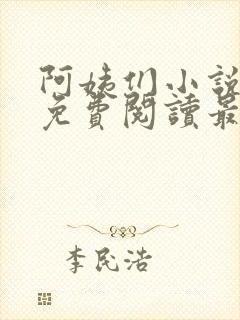 阿姨们小說
免費閱讀最
李民浩